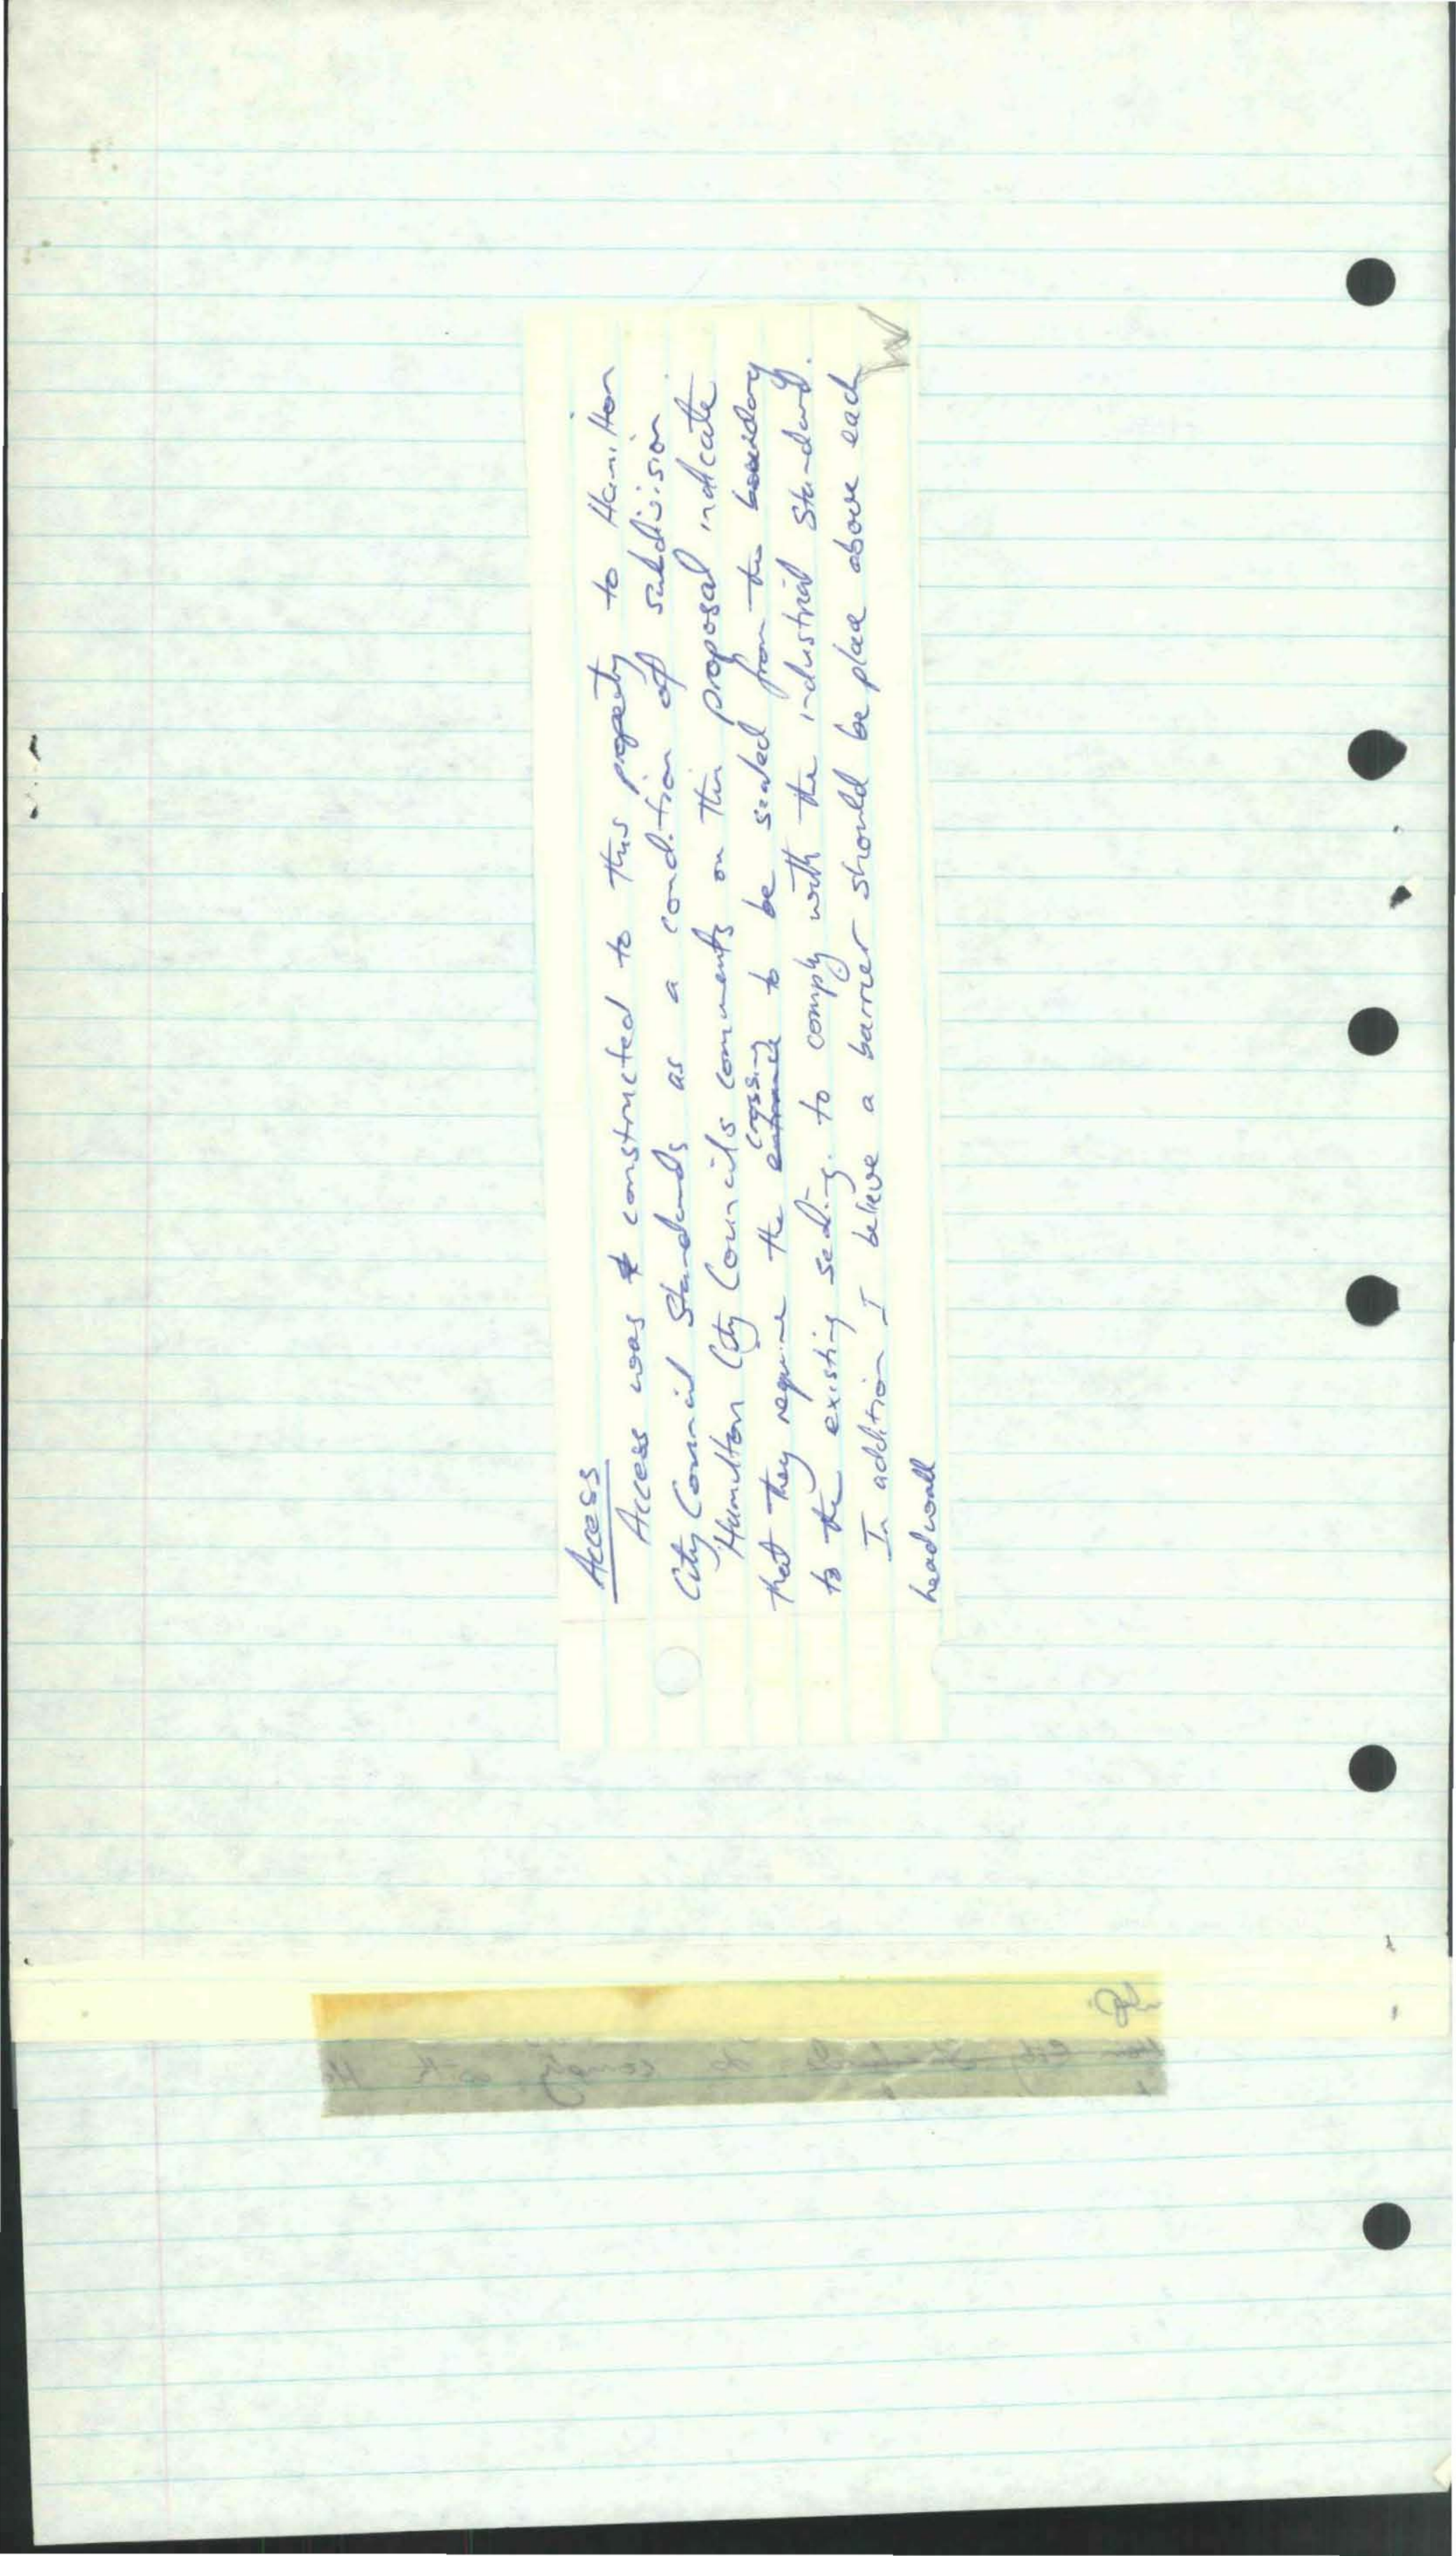 Access
Access was constructed to this property to Hamilton
City Council Standards as a condition of subdivision.
Hamilton City Councils comments on this proposal indicate
that they require the entrance crossing to be sealed from the boundary
to the existing sealing. to comply with the industrial standard.
In addition I believe a barrier should be place above each
headwall
comply with